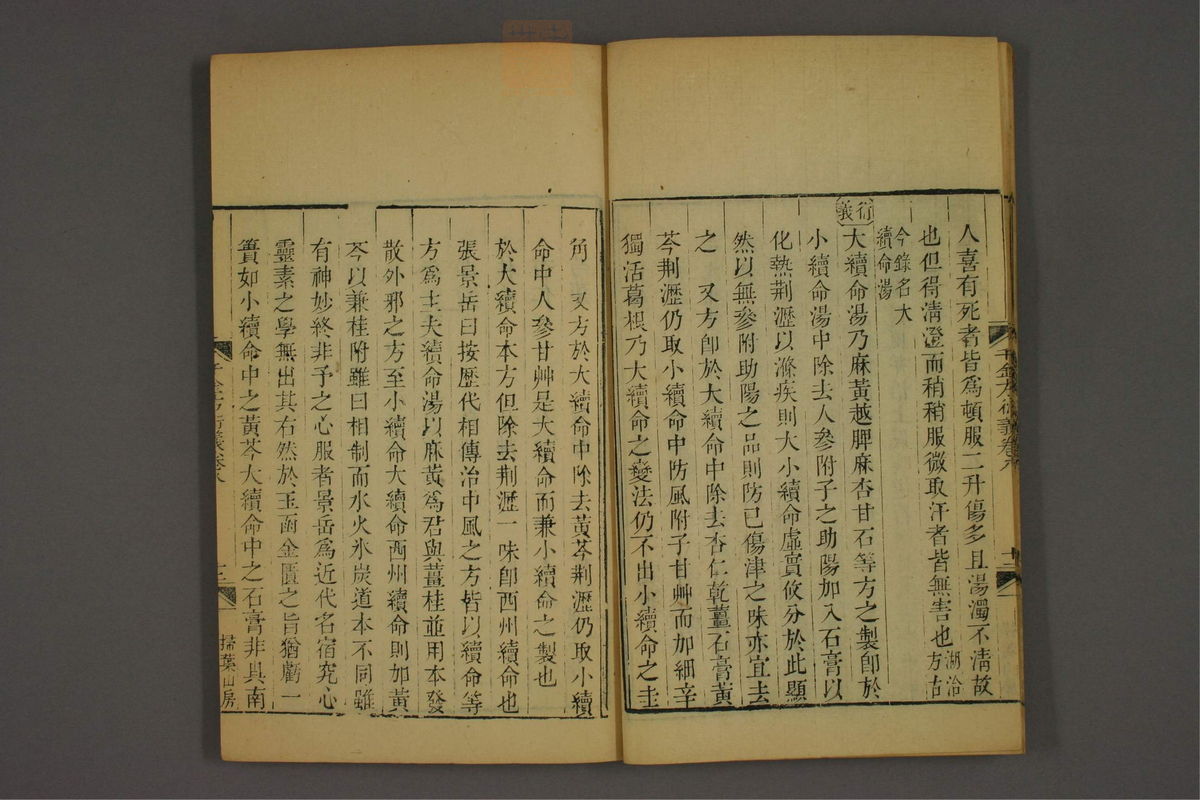 人喜有死者皆爲頓服二升傷多且湯濁不淸故
也但得淸澄而稍稍服微取汗者皆無害也湖洽方古
今錄名大續命湯
衍義
大續命湯乃麻黃越脾麻杏甘石等方之製卽於
小續命湯中除去人參附子之助陽加入石膏以
化熱荆瀝以滌痰則大小續命虛實攸分於此顯
然以無參附助陽之品則防已傷津之味亦宜去
之　又方卽於大續命中除去杏仁乾薑石膏黃
芩荆瀝仍取小續命中防風附子甘艸而加細辛
獨活葛根乃大續命之變法仍不出小續命之圭
角　又方於大續命中除去黃芩荆瀝仍取小續
命中人參甘艸是大續命而兼小續命之製也
於大續命本方但除去荆瀝一味卽西州續命也
張景岳曰按歷代相傳治中風之方皆以續命等
方爲主夫續命湯以麻黃爲君與薑桂並用本發
散外邪之方至小續命大續命西州續命則加黃
芩以兼桂附雖曰相制而水火氷炭道本不同雖
有神妙終非予之心服者景岳爲近代名宿究心
靈素之學無出其右然於玉函金匱之旨猶虧一
簣如小續命中之黃芩大續命中之石膏非具南
掃葉山房